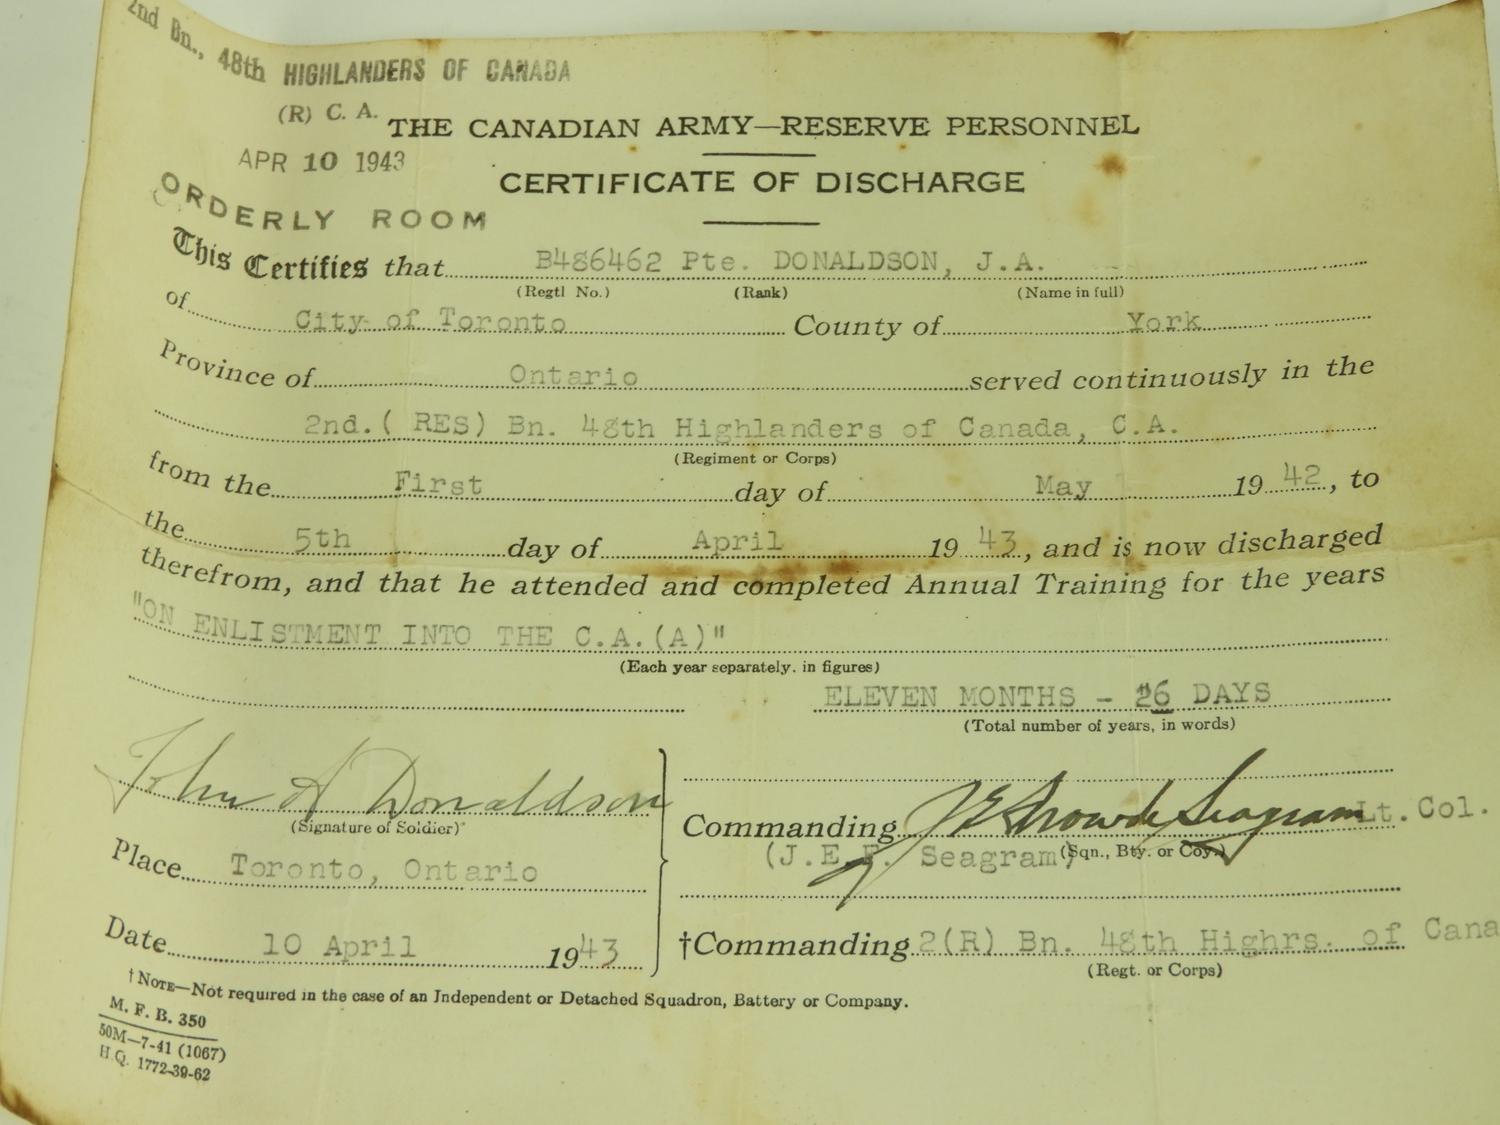 2nd Bn., 48th HIGHLANDERS OF CANADA
(R) C. A.
APR 10 1943
ORDERLY ROOM
THE CANADIAN ARMY—RESERVE PERSONNEL
CERTIFICATE OF DISCHARGE
This Certifies that B486462 Pte. DONALDSON, J.A.
(Regtl No.) (Rank) (Name in full)
of City of Toronto County of York
Province of Ontario served continuously in the
2nd.( RES) Bn. 48th Highlanders of Canada, C.A.
(Regiment or Corps)
from the First day of May 19 42, to
the 5th day of April 19 43, and is now discharged
therefrom, and that he attended and completed Annual Training for the years
"ON ENLISTMENT INTO THE C.A.(A)"
(Each year separately. in figures)
ELEVEN MONTHS - 26 DAYS
(Total number of years, in words)
John A Donaldson
(Signature of Soldier)
Commanding Seagram Lt. Col.
(J.E.F. Seagram) (Sqn., Bty. or Coy.)
Place Toronto, Ontario
Date 10 April 1943
†Commanding 2(R) Bn. 48th Highrs. of Cana
(Regt. or Corps)
† NOTE—Not required in the case of an Independent or Detached Squadron, Battery or Company.
M. F. B. 350
50M—7-41 (1067)
H.Q. 1772-39-62